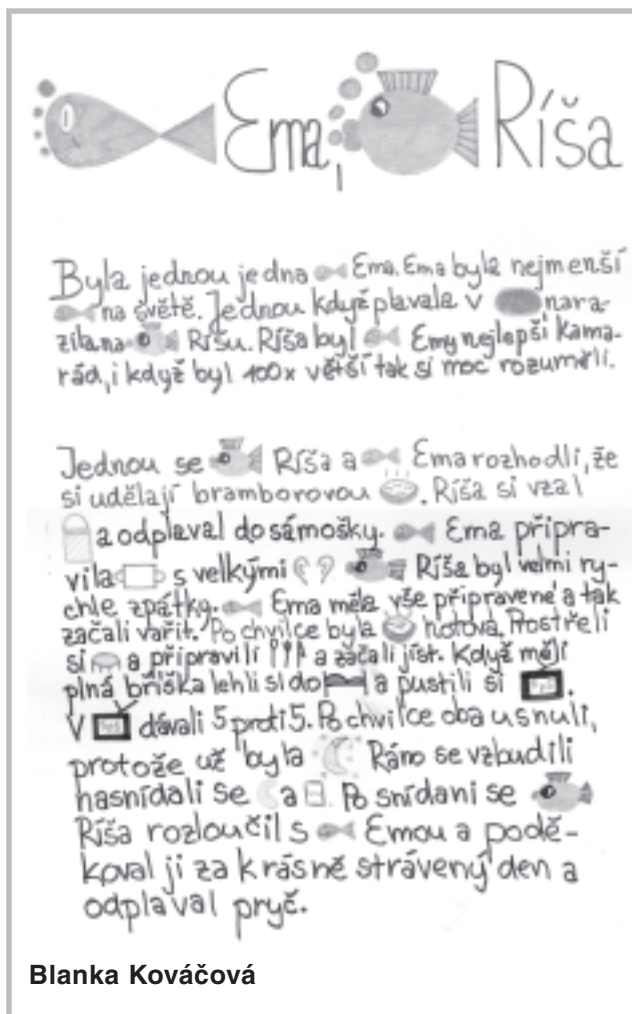 Ema, Ríša
Byla jednou jedna Ema. Ema byla nejmenší
na světě. Jednou když plavala v nara-
zila na Ríšu. Ríša byl Emy nejlepší kama-
rád, i když byl 100x větší tak si moc rozuměli.
Jednou se Ríša a Ema rozhodli, že
si udělají bramborovou . Ríša si vzal
a odplaval do sámošky. Ema připra-
vila s velkými Ríša byl velmi ry-
chle zpátky. Ema měla vše připravené a tak
začali vařit. Po chvilce byla hotová. Prostřeli
si a připravili a začali jíst. Když měli
plná bříška lehli si do a pustili si .
V dávali 5 proti 5. Po chvilce oba usnuli,
protože už byla Ráno se vzbudili
nasnídali se a . Po snídani se
Ríša rozloučil s Emou a podě-
koval ji za krásně strávený den a
odplaval pryč.
Blanka Kováčová